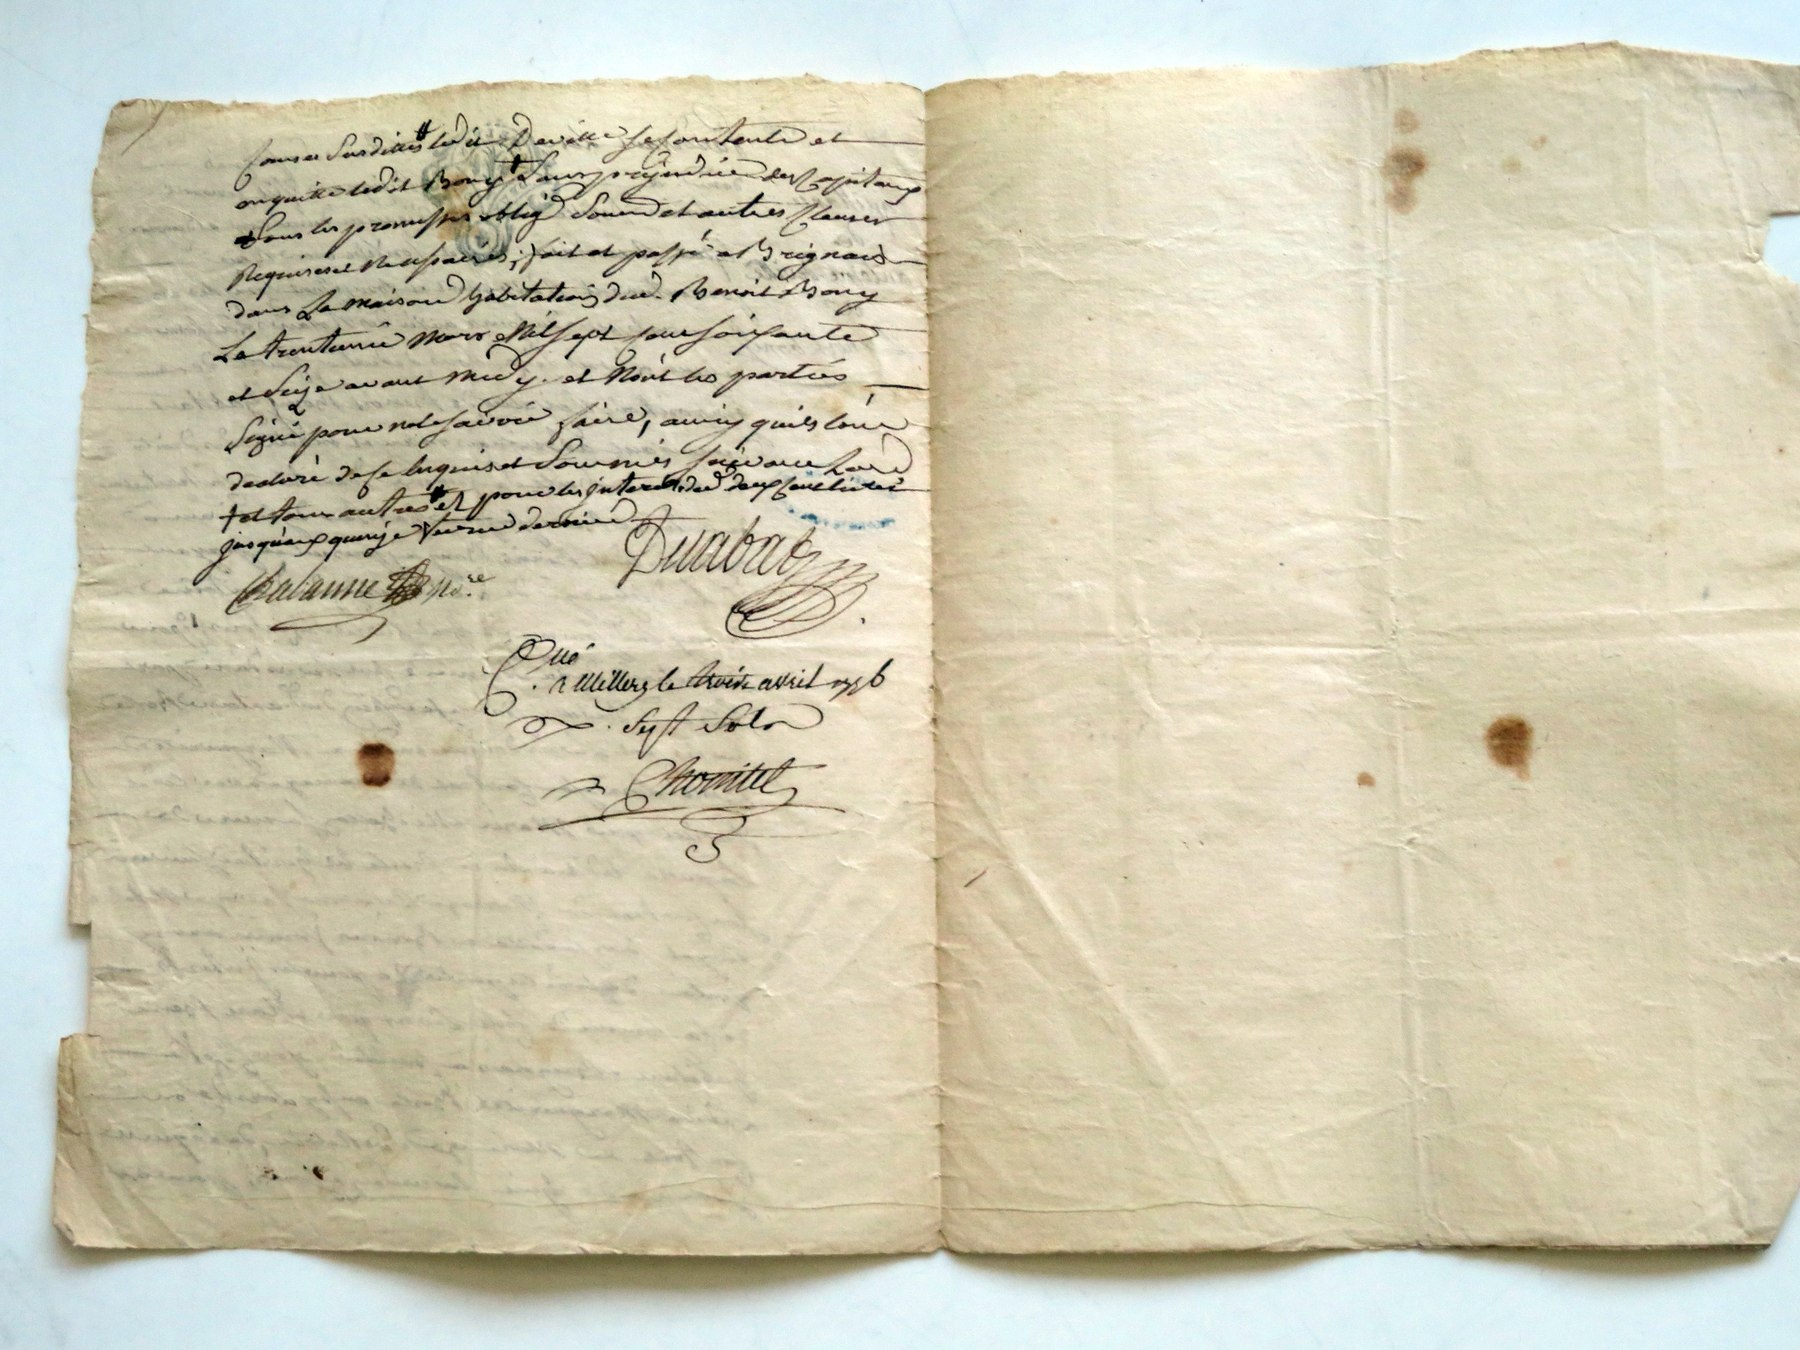 causes susdittes ledit Deville se contente et
en quitte ledit Bony † sans prejudice des Capitaux
sous les promesses oblig soum et autres Clauses
Requises et Necessaires, fait et passé a Brignais
dans La maison d'habitation dud. Benoit Bony
Le trentieme Mars Mil sept cens soixante
et Seize avant midy. et N'ont les parties
signé pour ne le sçavoir faire, ainsy qu'ils l'ont
declaré de ce enquis et sommés
† et tous autres et pour les interets des deux
jusqu'aux quinze dernier
Duabat
Chalanne no.re
Cllé
a Millery le trois avril 1776
Sept Sols
Chomitel